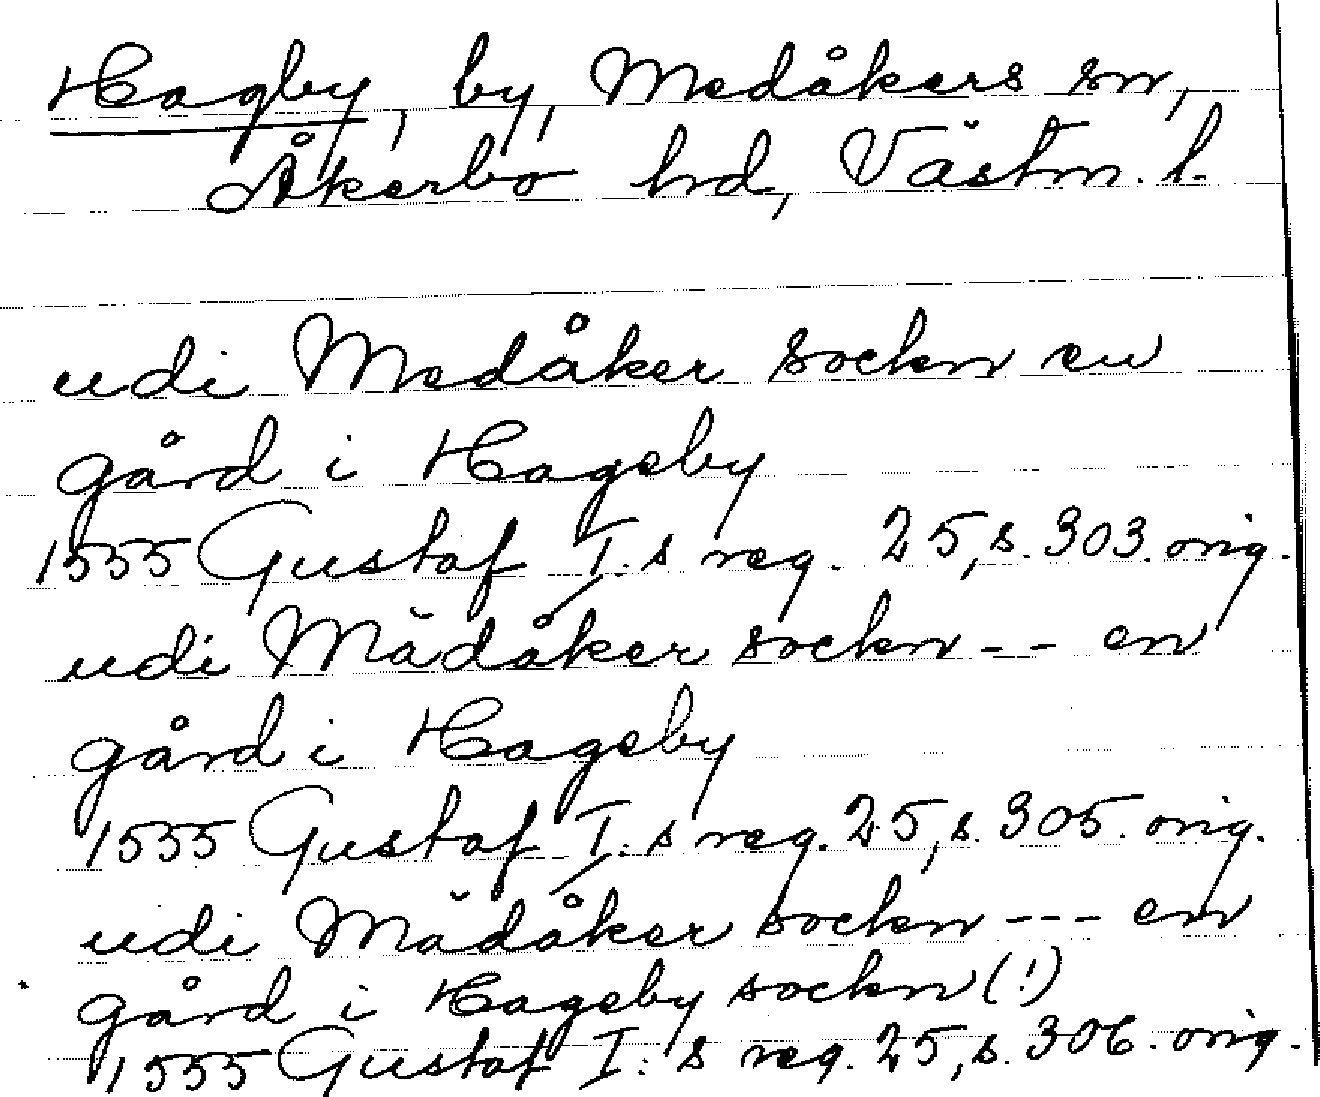 Hagby, by, Medåkers sn,
Åkerbo hd, Västm. l.
udi Medåker sockn en
gård i Hageby
1555 Gustaf I:s reg. 25, s. 303. orig.
udi Mädåker sockn -- en
gård i Hageby
1555 Gustaf I:s reg. 25, s. 305. orig.
udi Mädåker sockn --- en
gård i Hageby sockn (!)
1555 Gustaf I:s reg. 25, s. 306. orig.